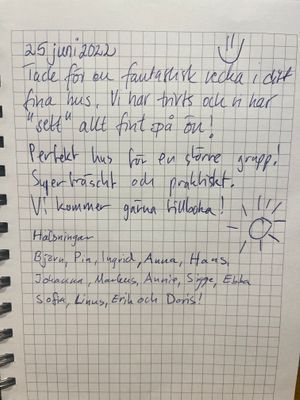 25 juni 2022
Tack för en fantastisk vecka i ditt
fina hus. Vi har trivts och vi har
"sett" allt fint på ön!
Perfekt hus för en större grupp!
Superfräscht och praktiskt.
Vi kommer gärna tillbaka!
Hälsningar
Björn, Pia, Ingrid, Anna, Hans,
Johanna, Markus, Annie, Sigge, Ebba
Sofia, Linus, Erik och Doris!